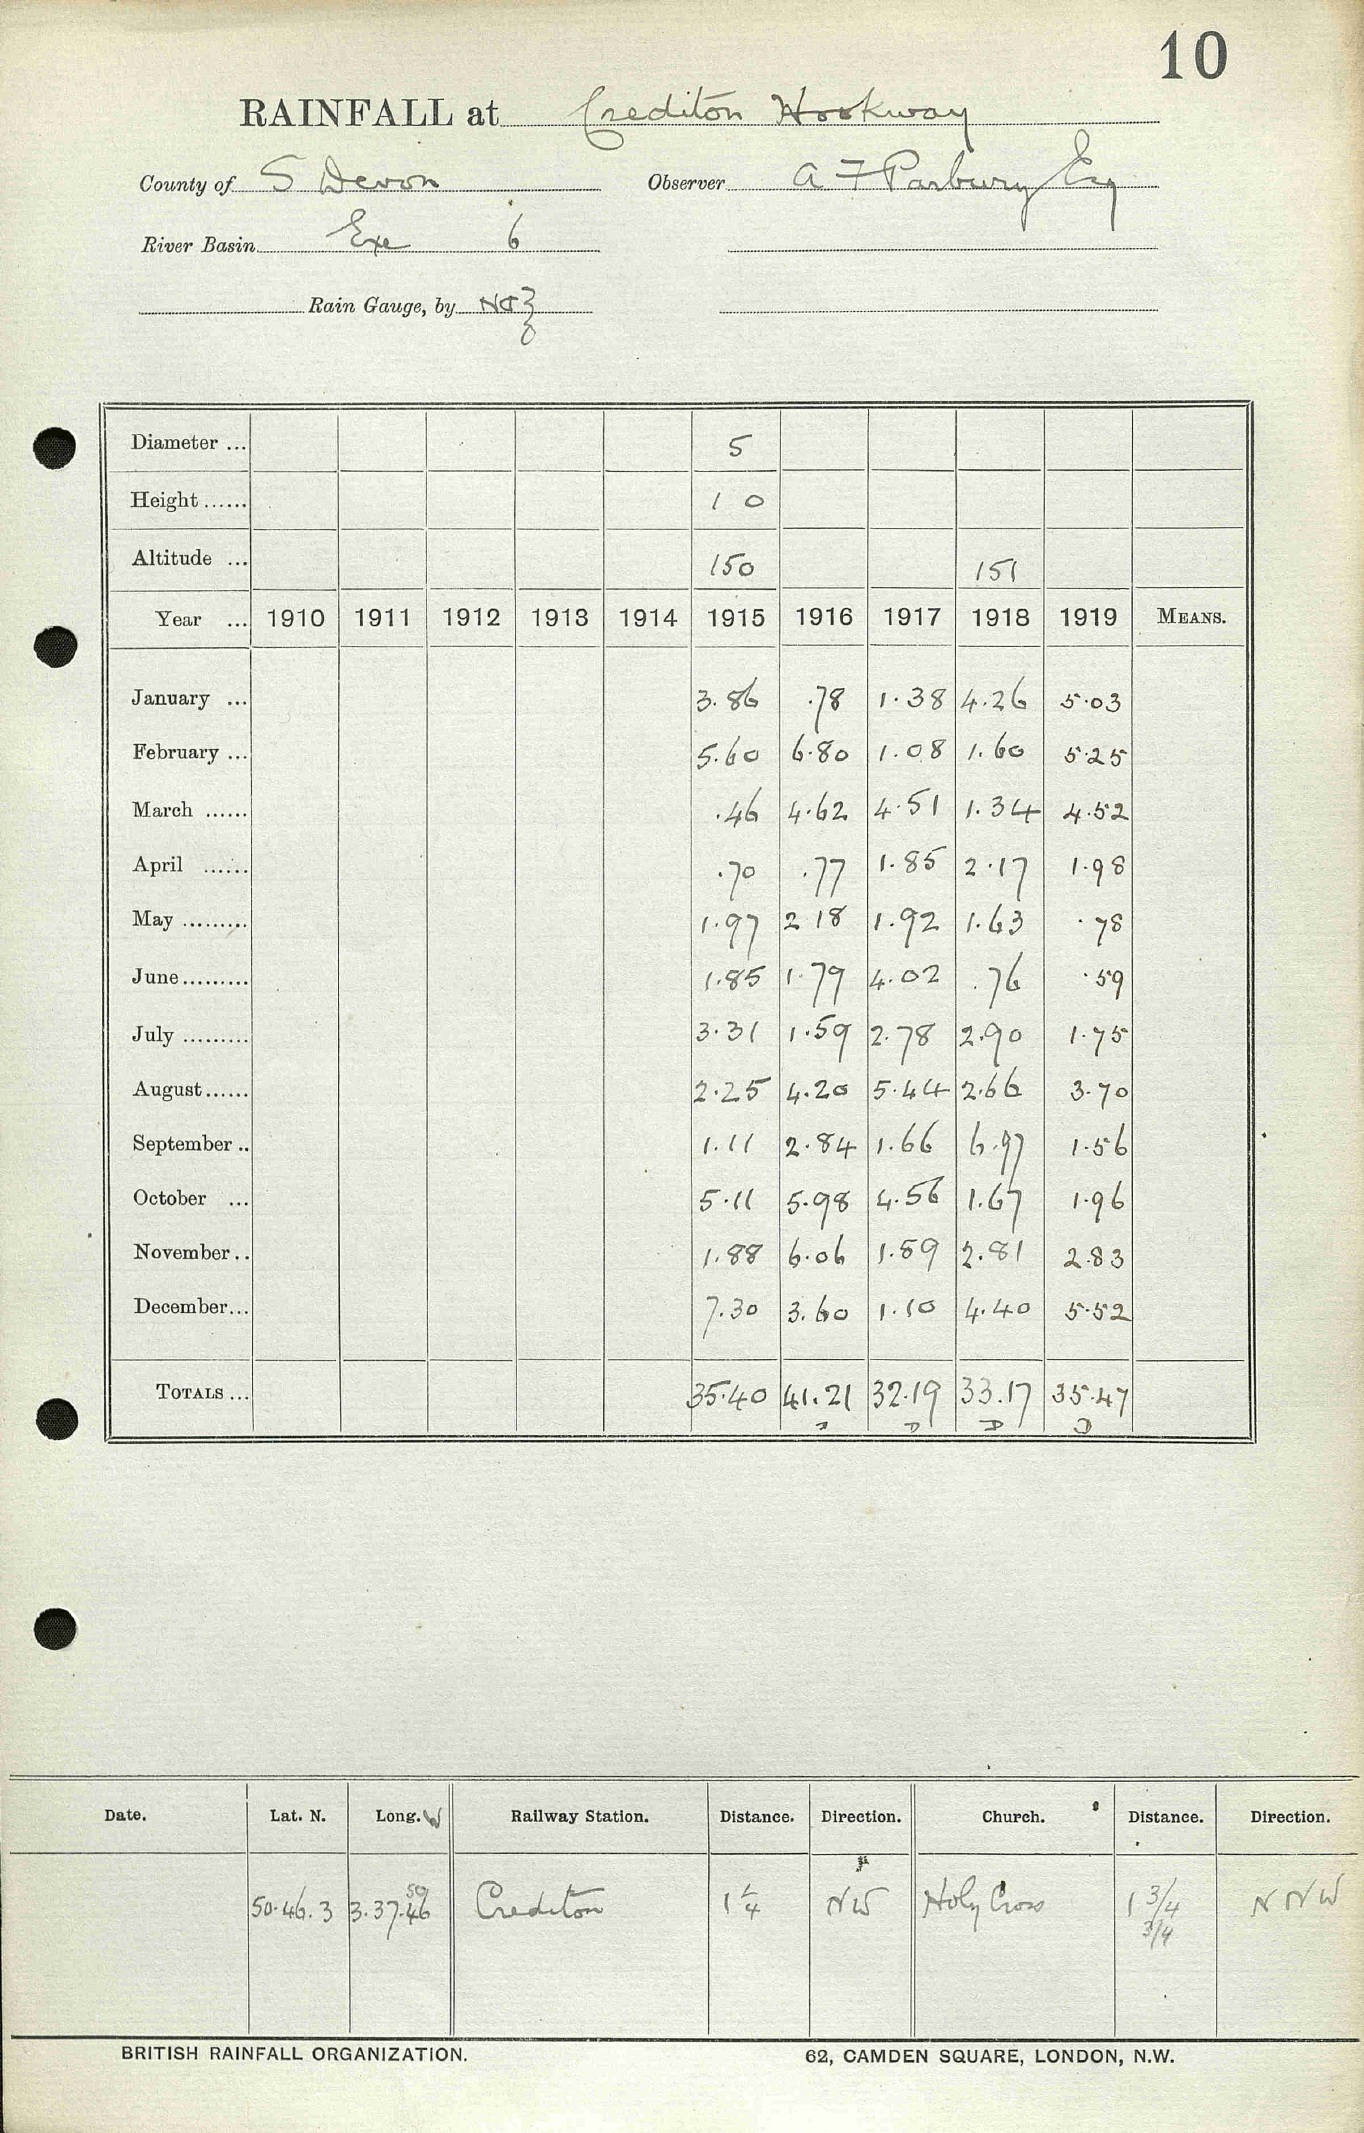 10
RAINFALL at Crediton Hookway
County of S Devon Observer A F Parbury Esq
River Basin Exe 6
Rain Gauge, by N&Z
Diameter ... 5
Height ...... 1 0
Altitude ... 150 151
Year ... 1910 1911 1912 1913 1914 1915 1916 1917 1918 1919 MEANS.
January ... 3.86 .78 1.38 4.26 5.03
February ... 5.60 6.80 1.08 1.60 5.25
March ...... .46 4.62 4.51 1.34 4.52
April ...... .70 .77 1.85 2.17 1.98
May ......... 1.97 2 18 1.92 1.63 .78
June ......... 1.85 1.79 4.02 .76 .59
July ......... 3.31 1.59 2.78 2.90 1.75
August ...... 2.25 4.20 5.44 2.66 3.70
September .. 1.11 2.84 1.66 6.97 1.56
October ... 5.11 5.98 4.56 1.67 1.96
November .. 1.88 6.06 1.89 2.81 2.83
December ... 7.30 3.60 1.10 4.40 5.52
TOTALS ... 35.40 41.21 32.19 33.17 35.47
D D D D
Date. Lat. N. Long. W Railway Station. Distance. Direction. Church. Distance. Direction.
50
50.46.3 3.37.46 Crediton 1 1/4 NW Holy Cross 1 3/4 N N W
3/4
BRITISH RAINFALL ORGANIZATION. 62, CAMDEN SQUARE, LONDON, N.W.